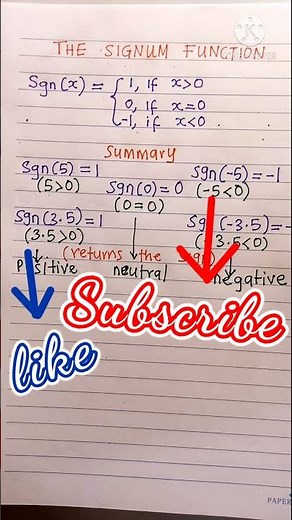 THE SIGNUM FUNCTION
Sgn(x) = { 1, if x>0
0, if x=0
-1, if x<0
Summary
Sgn(5) = 1
(5>0)
Sgn(0) = 0
(0=0)
Sgn(-5) = -1
(-5<0)
Sgn(3.5) = 1
(3.5>0)
Sgn(-3.5) = -
3.5<0)
(returns the
neutral
negative
Subscribe
like
PAPER